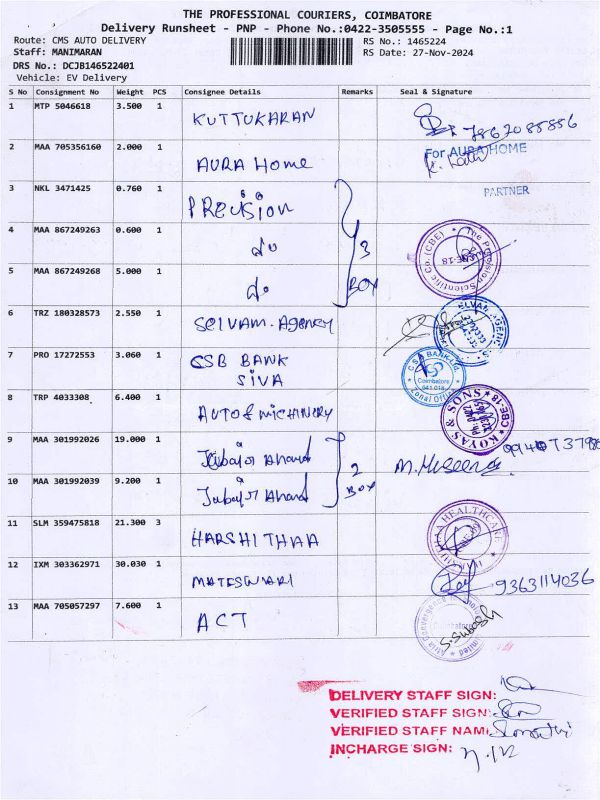 THE PROFESSIONAL COURIERS, COIMBATORE
Delivery Runsheet - PNP - Phone No.:0422-3505555 - Page No.:1
Route: CMS AUTO DELIVERY RS No.: 1465224
Staff: MANIMARAN RS Date: 27-Nov-2024
DRS No.: DCJB146522401
Vehicle: EV Delivery
S No Consignment No Weight PCS Consignee Details Remarks Seal & Signature
1 MTP 5046618 3.500 1 KUTTUKARAN 7867085856
2 MAA 705356160 2.000 1 AURA Home For AURA HOME
PARTNER
3 NKL 3471425 0.760 1 PRecision
4 MAA 867249263 0.600 1 3 The Precision Scientific Co. (CBE) CBE-18
5 MAA 867249268 5.000 1 BOX
6 TRZ 180328573 2.550 1 SELVAM. Agency
7 PRO 17272553 3.060 1 CSB BANK CSB BANK Ltd Coimbatore 641 018 Zonal Office
SIVA
8 TRP 4033308 6.400 1 AUTO & MICHINERY KOYAS & SONS CBE-18
9 MAA 301992026 19.000 1 2
10 MAA 301992039 9.200 1 BOX
11 SLM 359475818 21.300 3 HARSHITHAA HEALTHCARE
12 IXM 303362971 30.030 1 MATESWARI 9363114036
13 MAA 705057297 7.600 1 ACT Atria Convergence
DELIVERY STAFF SIGN:
VERIFIED STAFF SIGN:
VERIFIED STAFF NAME
INCHARGE SIGN: